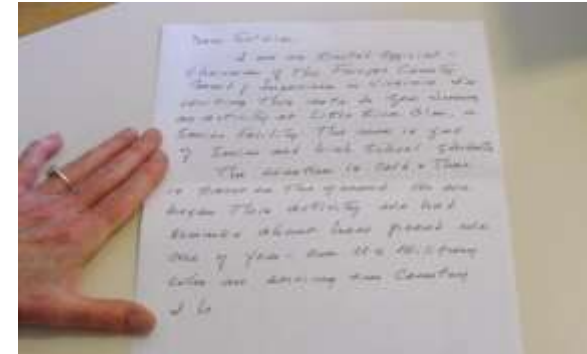 Dear Soldier,
I am an Elected Official -
Chairman of the Fairfax County
Board of Supervisors in Virginia. I'm
writing this note to you during
an activity at Little River Glen, a
Senior facility. The room is full
of Seniors and High School Students
The weather is cold & There
is snow on The ground. As we
began This activity we had
comments about how proud we
are of you - our U.S. Military
who are serving our Country
I